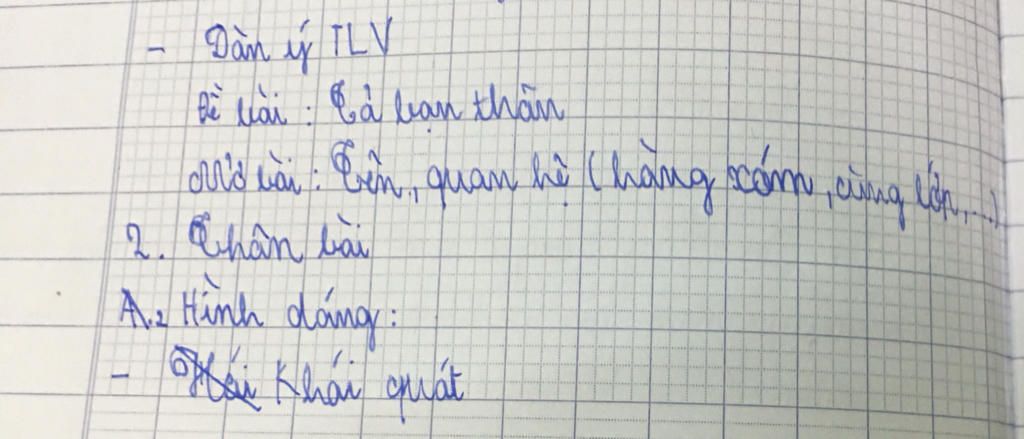 - Dàn ý TLV
Đề bài : Tả bạn thân
Mở bài : Tên, quan hệ (hàng xóm, cùng lớp,...)
2. Thân bài
A. Hình dáng :
- Khái quát